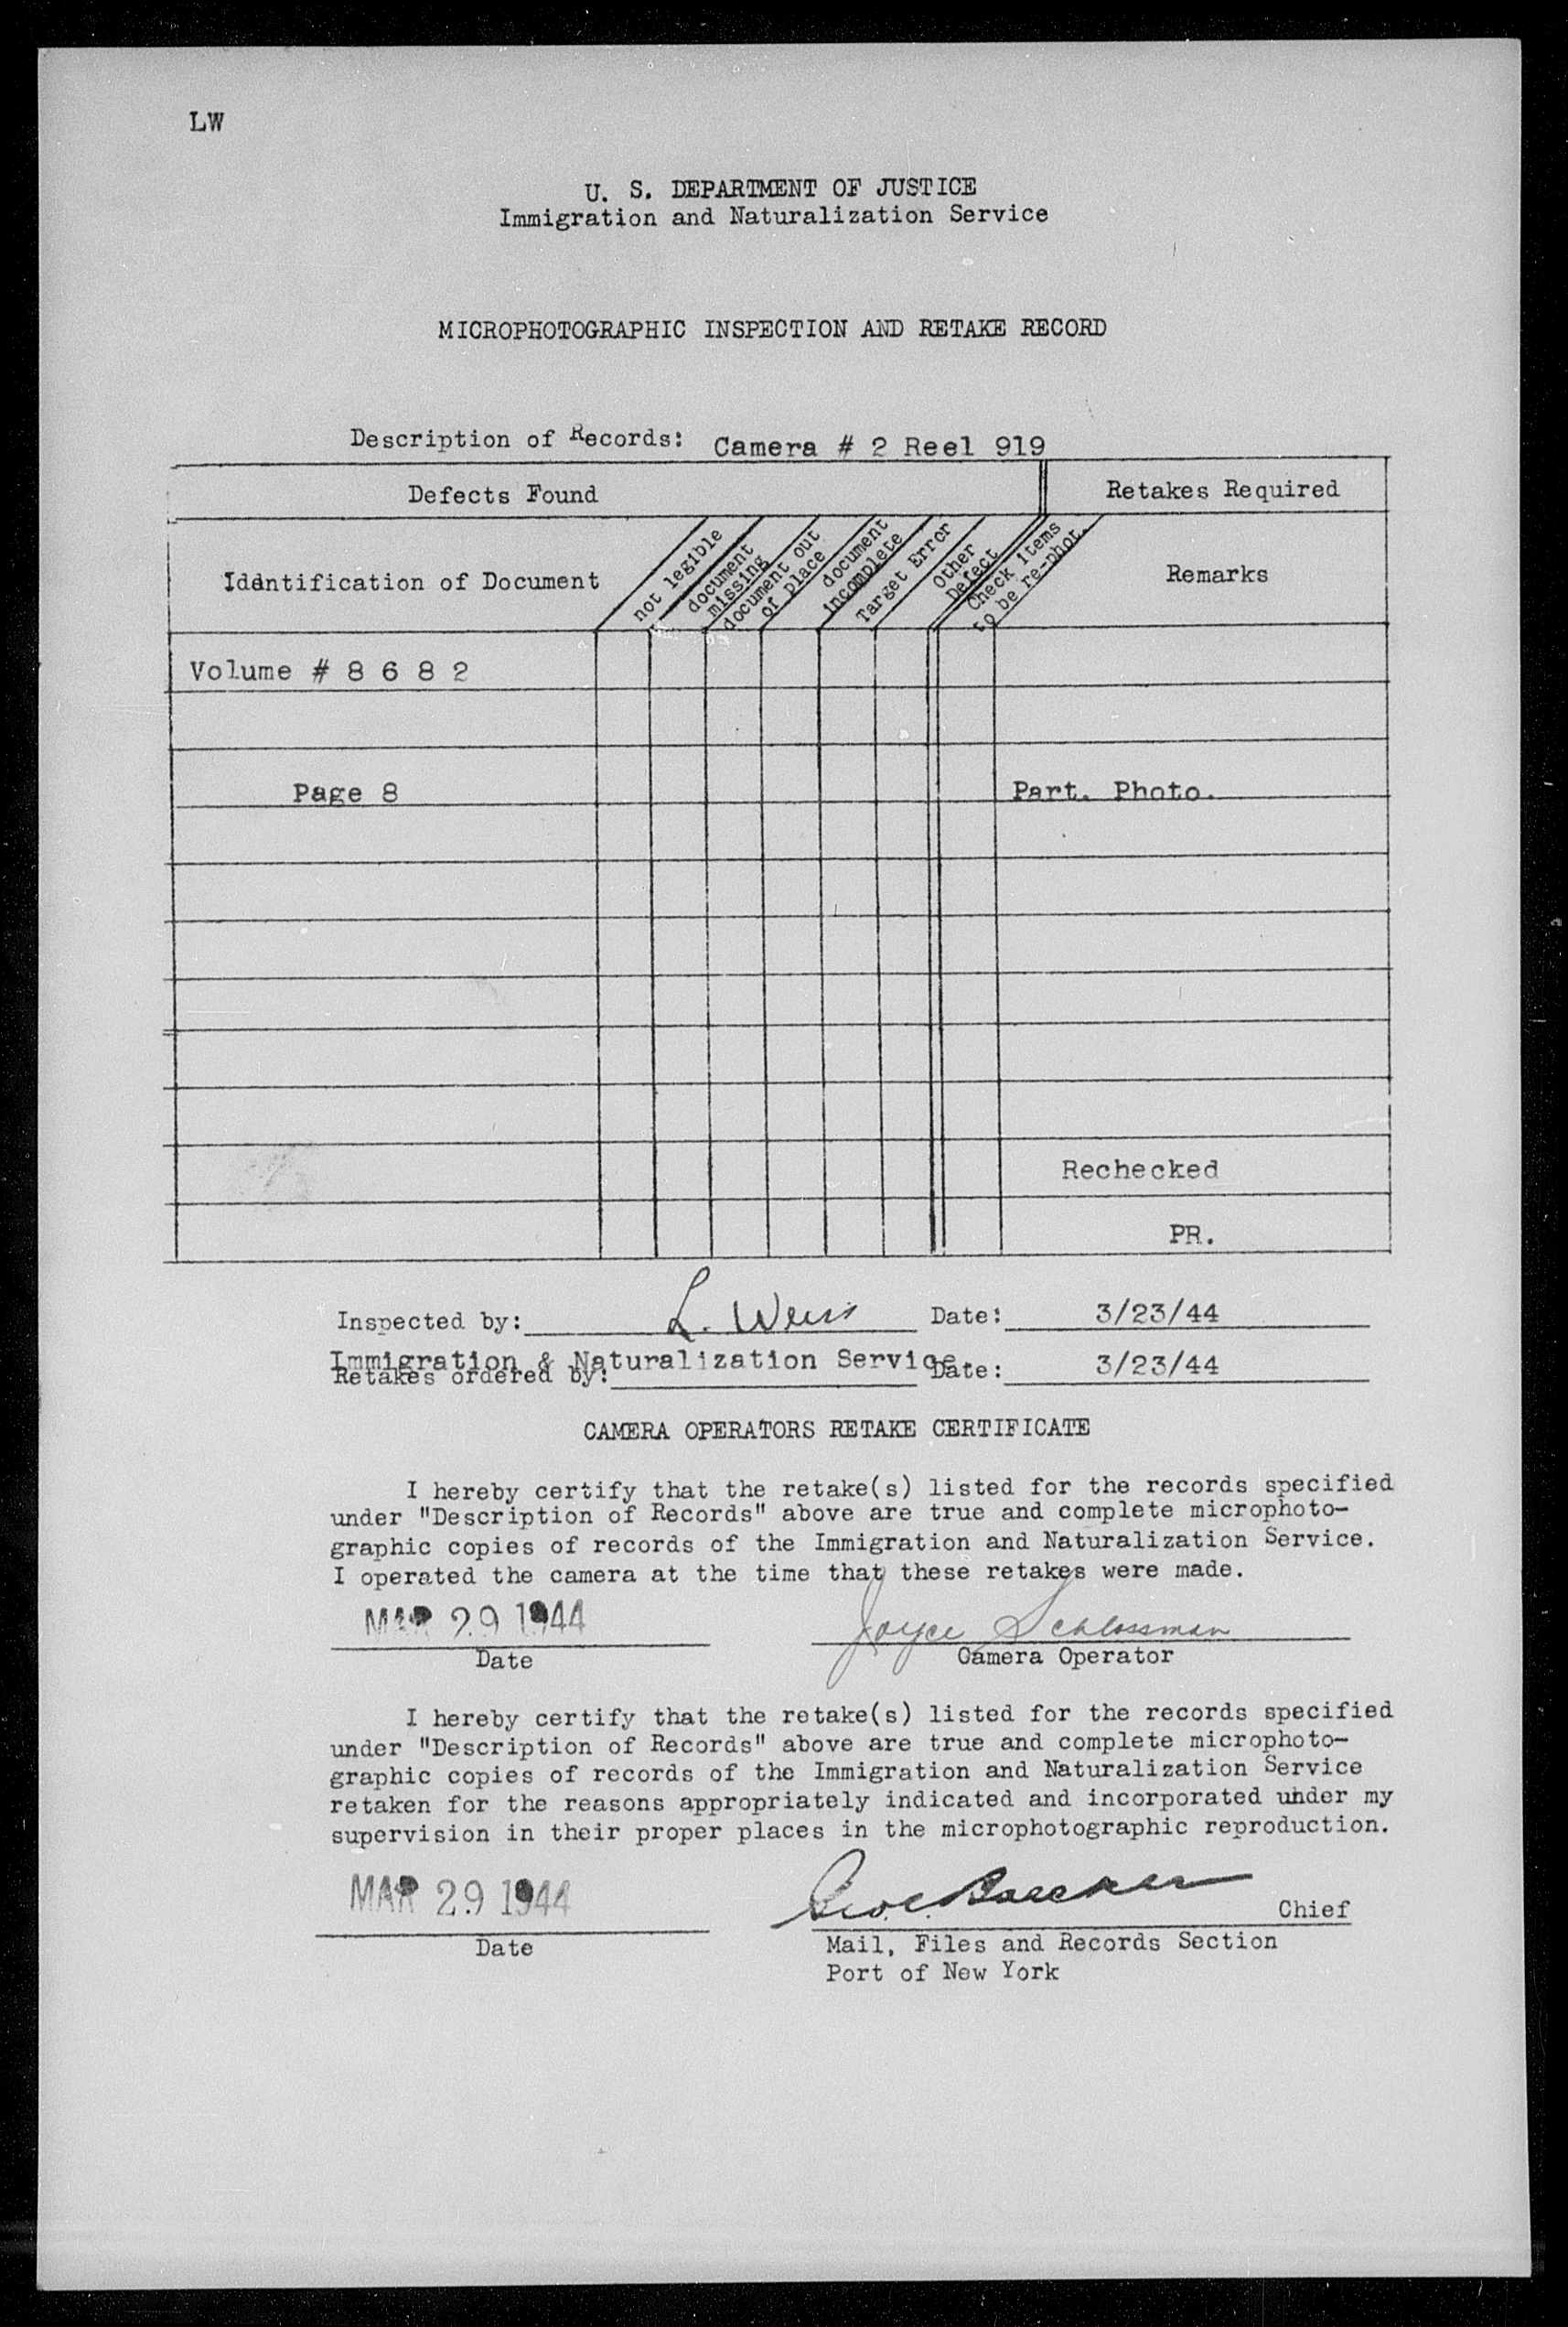 LW
U. S. DEPARTMENT OF JUSTICE
Immigration and Naturalization Service
MICROPHOTOGRAPHIC INSPECTION AND RETAKE RECORD
Description of Records: Camera # 2 Reel 919
Defects Found
Retakes Required
Idantification of Document
not legible
document missing
document out of place
document incomplete
Target Error
Other Defect
Check items to be re-phot.
Remarks
Volume # 8 6 8 2
Page 8 Part. Photo.
Rechecked
PR.
Inspected by: L. Weiss Date: 3/23/44
Immigration & Naturalization Service.
Retakes ordered by: Date: 3/23/44
CAMERA OPERATORS RETAKE CERTIFICATE
I hereby certify that the retake(s) listed for the records specified
under "Description of Records" above are true and complete microphoto-
graphic copies of records of the Immigration and Naturalization Service.
I operated the camera at the time that these retakes were made.
MAR 29 1944 Joyce Schlossman
Date Camera Operator
I hereby certify that the retake(s) listed for the records specified
under "Description of Records" above are true and complete microphoto-
graphic copies of records of the Immigration and Naturalization Service
retaken for the reasons appropriately indicated and incorporated under my
supervision in their proper places in the microphotographic reproduction.
MAR 29 1944 Chief
Date Mail, Files and Records Section
Port of New York